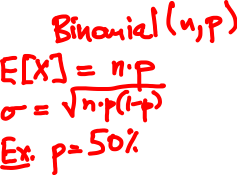 Binomial(n,p)
E[X] = n·p
σ = √n·p(1-p)
Ex. p=50%